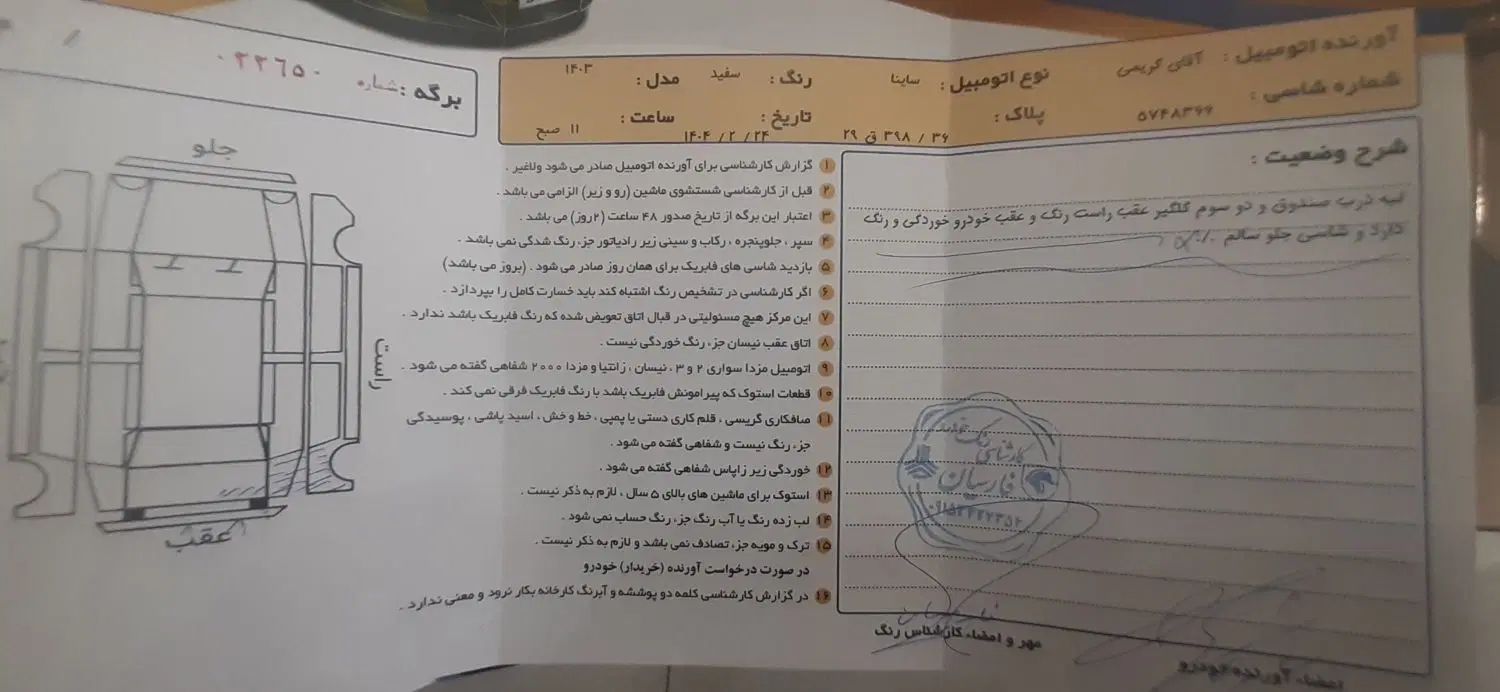 آورنده اتومبیل : آقای کریمی
نوع اتومبیل : ساینا
رنگ : سفید
مدل : ۱۴۰۳
شماره شاسی : ۵۷۴۸۳۶۶
پلاک : ۳۶ / ۳۹۸ ق ۲۹
تاریخ : ۲۴ / ۲ / ۱۴۰۴
ساعت : ۱۱ صبح
برگه : شماره ۰۲۲۶۵۰
شرح وضعیت :
لبه درب صندوق و دو سوم گلگیر عقب راست رنگ و عقب خودرو خوردگی و رنگ
دارد و شاسی جلو سالم
۱ گزارش کارشناسی برای آورنده اتومبیل صادر می شود ولاغیر .
۲ قبل از کارشناسی شستشوی ماشین (رو و زیر) الزامی می باشد .
۳ اعتبار این برگه از تاریخ صدور ۴۸ ساعت (۲روز) می باشد .
۴ سپر ، جلوپنجره ، رکاب و سینی زیر رادیاتور جزء رنگ شدگی نمی باشد .
۵ بازدید شاسی های فابریک برای همان روز صادر می شود . (بروز می باشد)
۶ اگر کارشناسی در تشخیص رنگ اشتباه کند باید خسارت کامل را بپردازد .
۷ این مرکز هیچ مسئولیتی در قبال اتاق تعویض شده که رنگ فابریک باشد ندارد .
۸ اتاق عقب نیسان جزء رنگ خوردگی نیست .
۹ اتومبیل مزدا سواری ۲ و ۳ ، نیسان ، زانتیا و مزدا ۲۰۰۰ شفاهی گفته می شود .
۱۰ قطعات استوک که پیرامونش فابریک باشد با رنگ فابریک فرقی نمی کند .
۱۱ صافکاری گریسی ، قلم کاری دستی یا پمپی ، خط و خش ، اسید پاشی ، پوسیدگی
جزء رنگ نیست و شفاهی گفته می شود .
۱۲ خوردگی زیر زاپاس شفاهی گفته می شود .
۱۳ استوک برای ماشین های بالای ۵ سال ، لازم به ذکر نیست .
۱۴ لب زده رنگ یا آب رنگ جزء رنگ حساب نمی شود .
۱۵ ترک و مویه جزء تصادف نمی باشد و لازم به ذکر نیست .
در صورت درخواست آورنده (خریدار) خودرو
۱۶ در گزارش کارشناسی کلمه دو پوششه و آبرنگ کارخانه بکار نرود و معنی ندارد .
جلو
راست
عقب
کارشناسی رنگ خودرو
فارسیان
مهر و امضاء کارشناس رنگ
امضاء آورنده خودرو